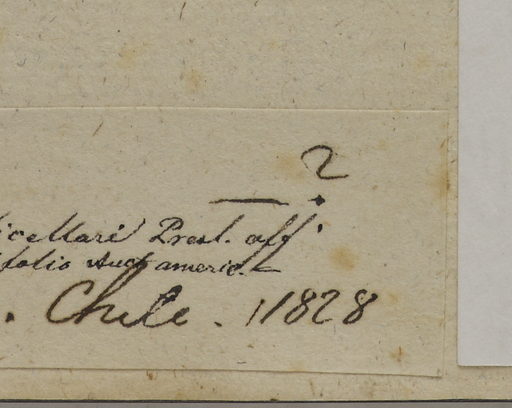 2
Presl. aff.
folio Auct americ.
. Chile. 1828